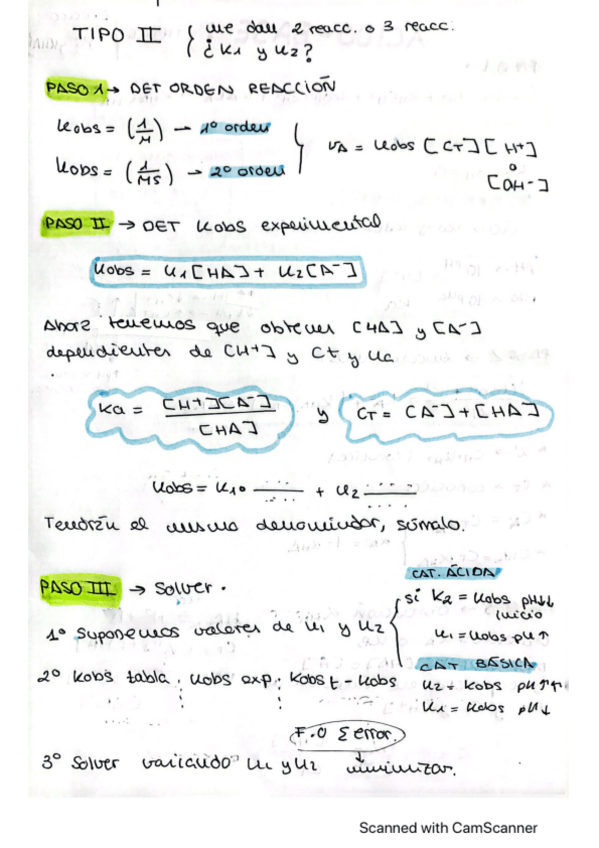 TIPO II { me dan 2 reacc. o 3 reacc.
¿ K1 y K2?
PASO 1 → DET ORDEN REACCIÓN
Kobs = (1/M) → 1º orden
Kobs = (1/MS) → 2º orden
VA = Kobs [CT][H+]
o
[OH-]
PASO II → DET Kobs experimental
Kobs = K1[HA] + K2[A-]
Ahora tenemos que obtener [HA] y [A-]
dependientes de [H+] y Ct y Ka
Ka = [H+][A-] / [HA] y CT = [A-] + [HA]
Kobs = K1· ——— + K2 ———
Tendrán el mismo denominador, súmalo.
PASO III → Solver.
1º Suponemos valores de K1 y K2
CAT. ÁCIDA
si K2 = Kobs pH↓↓
inicio
K1 = Kobs pH↑
CAT BÁSICA
K2 = Kobs pH↑↑
K1 = Kobs pH↓
2º Kobs tabla : Kobs exp : Kobs t - Kobs
F.O Σ error.
3º Solver variando K1 y K2 minimizar.
Scanned with CamScanner